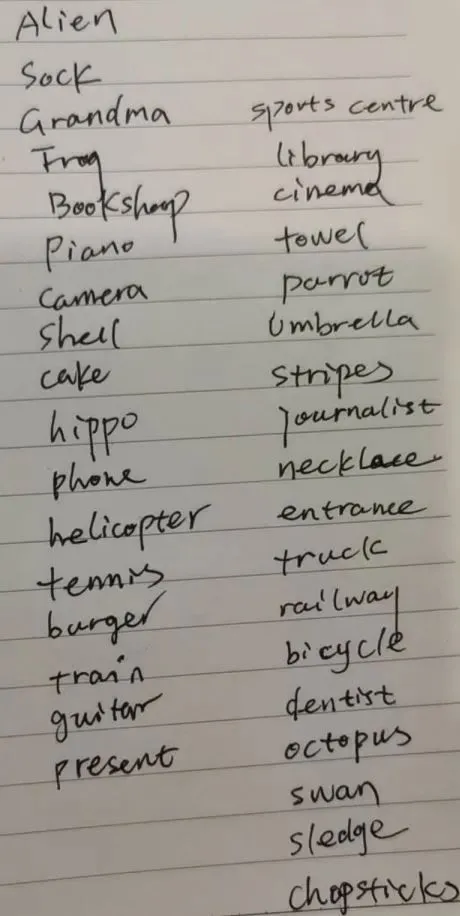 Alien
Sock
Grandma
Frog
Bookshop
Piano
camera
shell
cake
hippo
phone
helicopter
tennis
burger
train
guitar
present
sports centre
library
cinema
towel
parrot
Umbrella
stripes
journalist
necklace
entrance
truck
railway
bicycle
dentist
octopus
swan
sledge
chopsticks